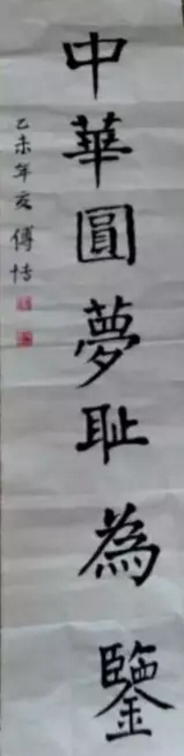 中華圓夢耻為鑒
乙未年亥傅恬